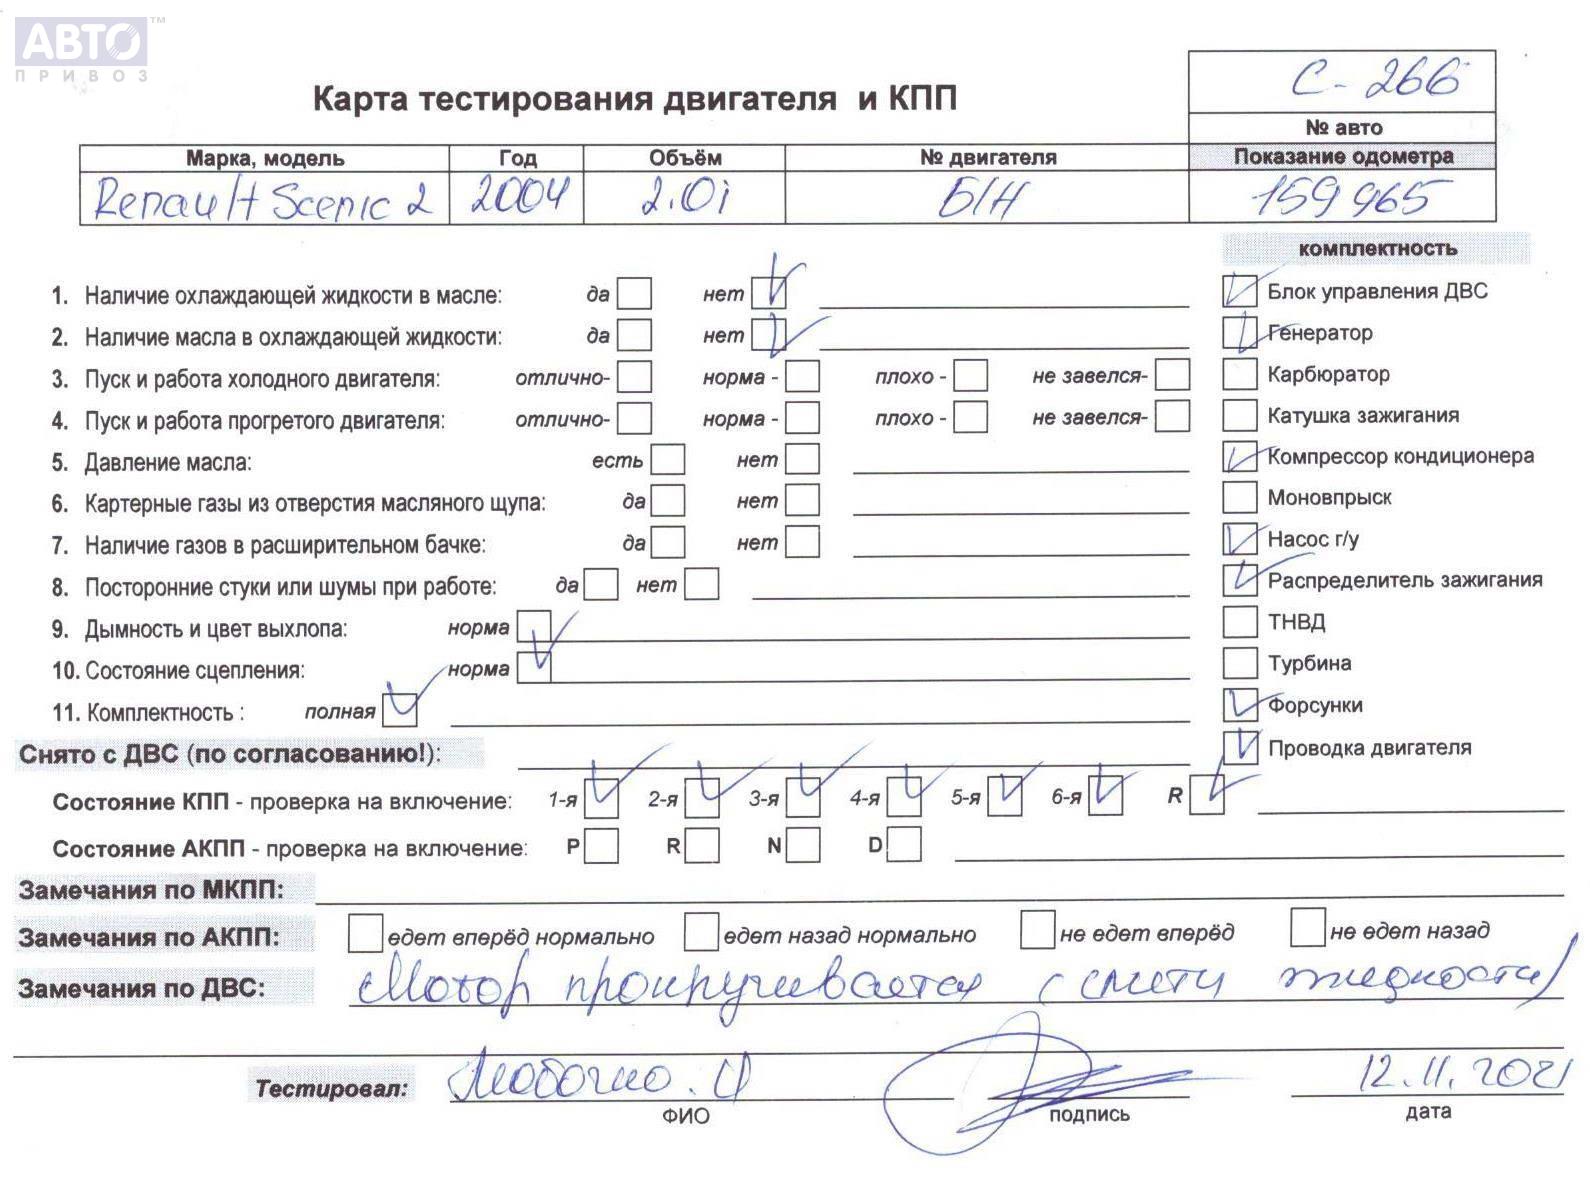 АВТО™
ПРИВОЗ
С-266
Карта тестирования двигателя и КПП
№ авто
Марка, модель Год Объём № двигателя Показание одометра
Renault Scenic 2 2004 2.0i Б/Н 159 965
комплектность
1. Наличие охлаждающей жидкости в масле: да нет
Блок управления ДВС
2. Наличие масла в охлаждающей жидкости: да нет
Генератор
3. Пуск и работа холодного двигателя: отлично- норма - плохо - не завелся-
Карбюратор
4. Пуск и работа прогретого двигателя: отлично- норма - плохо - не завелся-
Катушка зажигания
5. Давление масла: есть нет
Компрессор кондиционера
6. Картерные газы из отверстия масляного щупа: да нет
Моновпрыск
7. Наличие газов в расширительном бачке: да нет
Насос г/у
8. Посторонние стуки или шумы при работе: да нет
Распределитель зажигания
9. Дымность и цвет выхлопа: норма
ТНВД
10. Состояние сцепления: норма
Турбина
11. Комплектность : полная
Форсунки
Снято с ДВС (по согласованию!):
Проводка двигателя
Состояние КПП - проверка на включение: 1-я 2-я 3-я 4-я 5-я 6-я R
Состояние АКПП - проверка на включение: P R N D
Замечания по МКПП:
Замечания по АКПП: едет вперёд нормально едет назад нормально не едет вперёд не едет назад
Замечания по ДВС: Мотор прокручивается жидкости)
Тестировал: 12.11.2021
ФИО подпись дата